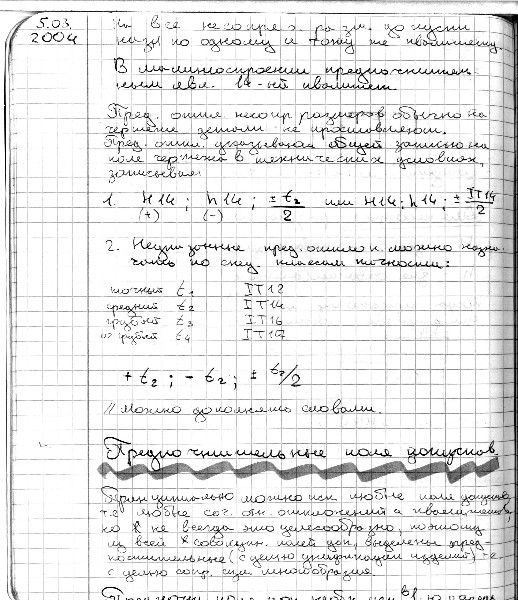 5.03.
2004
На все несопряж. разм. допуски
назн по одному и тому же квалитету
В машиностроении предпочтитель
ным явл. 14-ый квалитет
Пред. откл. несопр размеров обычно на
чертеже детали не проставляют.
Пред. откл. указывают общей записью на
поле чертежа в технических условиях,
записывая:
1. H14 ; h14 ; ± t2/2 или H14; h14; ± IT14/2
(+) (-)
2. Неуказанные пред. откло н. можно назна
чать по спец. классам точности:
точный t1 IT12
средний t2 IT14
грубый t3 IT16
оч грубый t4 IT17
+ t2 ; - t2 ; ± t2/2
// Можно дополнять словами.
Предпочтительные поля допусков
Принципиально можно исп. любые поля допусков,
т.е любые соч. осн. отклонений и квалитетов,
но не всегда это целесообразно, поэтому
из всей совокупн. полей доп. выделены пред-
почтительные (с целью унификации изделий) -
с целью сокр. многообразия